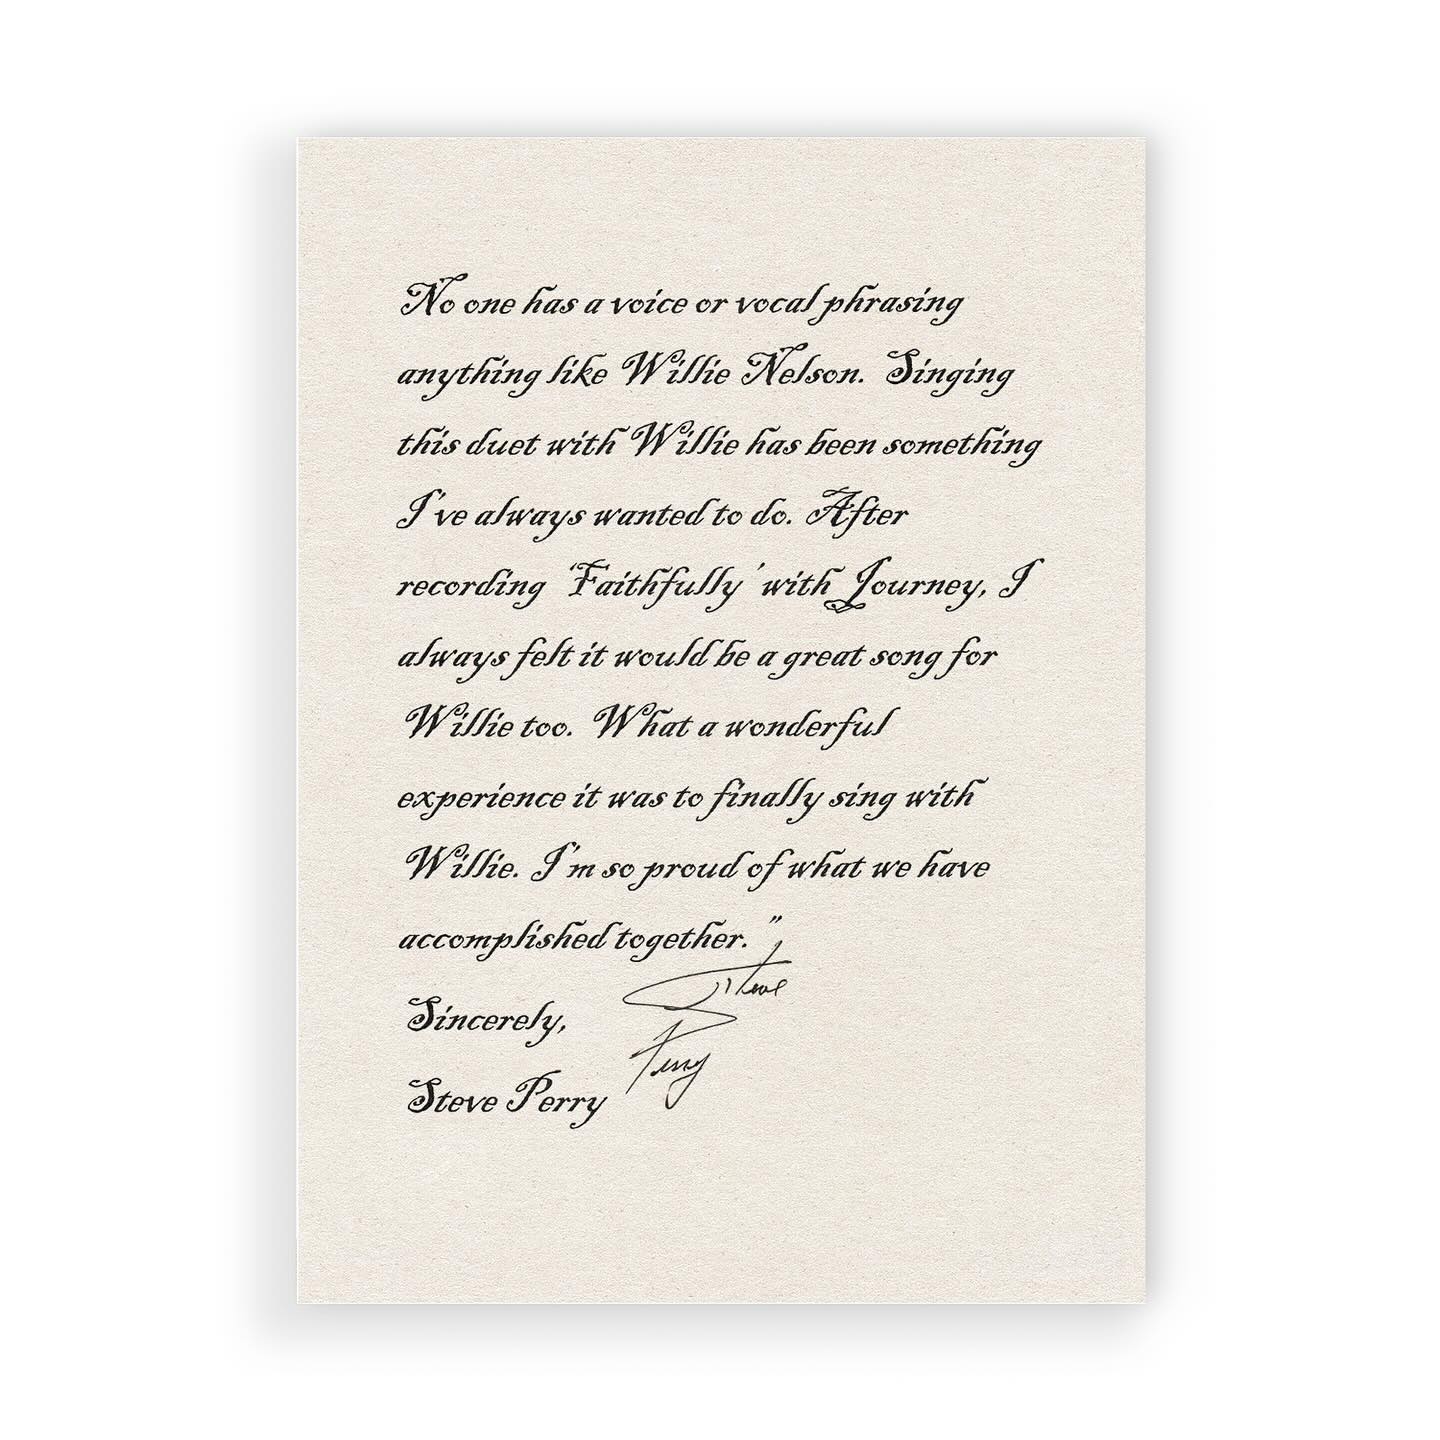 No one has a voice or vocal phrasing
anything like Willie Nelson. Singing
this duet with Willie has been something
I've always wanted to do. After
recording 'Faithfully' with Journey, I
always felt it would be a great song for
Willie too. What a wonderful
experience it was to finally sing with
Willie. I'm so proud of what we have
accomplished together."
Sincerely,
Steve Perry
Steve
Perry